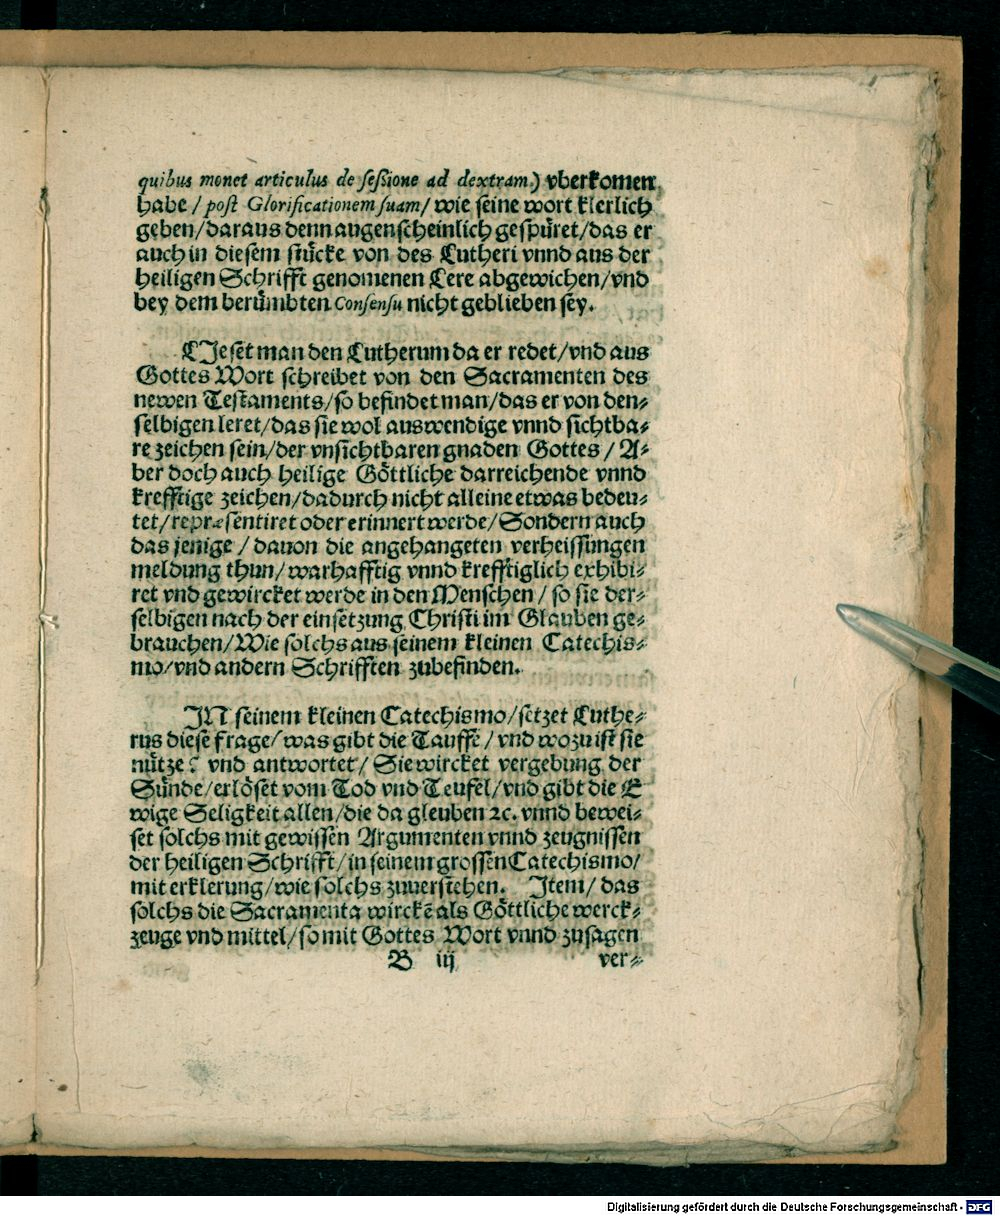 quibus monet articulus de seßione ad dextram.) vberkomen
habe / post Glorificationem suam / wie seine wort klerlich
geben / daraus denn augenscheinlich gespüret / das er
auch in diesem stücke von des Lutheri vnnd aus der
heiligen Schrifft genomenen Lere abgewichen / vnd
bey dem berümbten Consensu nicht geblieben sey.
LJeset man den Lutherum da er redet / vnd aus
Gottes Wort schreibet von den Sacramenten des
newen Testaments / so befindet man / das er von den⸗
selbigen leret / das sie wol auswendige vnnd sichtba⸗
re zeichen sein / der vnsichtbaren gnaden Gottes / A⸗
ber doch auch heilige Göttliche darreichende vnnd
krefftige zeichen / dadurch nicht alleine etwas bedeu⸗
tet / repræsentiret oder erinnert werde / Sondern auch
das jenige / dauon die angehangeten verheissungen
meldung thun / warhafftig vnnd krefftiglich exhibi⸗
ret vnd gewircket werde in den Menschen / so sie der⸗
selbigen nach der einsetzung Christi im Glauben ge⸗
brauchen / Wie solchs aus seinem kleinen Catechis⸗
mo / vnd andern Schrifften zubefinden.
JN seinem kleinen Catechismo / setzet Luthe⸗
rus diese frage / was gibt die Tauffe / vnd wozu ist sie
nütze? vnd antwortet / Sie wircket vergebung der
Sünde / erlöset vom Tod vnd Teufel / vnd gibt die E
wige Seligkeit allen / die da gleuben ꝛc. vnnd bewei⸗
set solchs mit gewissen Argumenten vnnd zeugnissen
der heiligen Schrifft / in seinem grossen Catechismo /
mit erklerung / wie solchs zuuerstehen. Jtem / das
solchs die Sacramenta wirckē als Göttliche werck⸗
zeuge vnd mittel / so mit Gottes Wort vnnd zusagen
B iij ver⸗
Digitalisierung gefördert durch die Deutsche Forschungsgemeinschaft - DFG